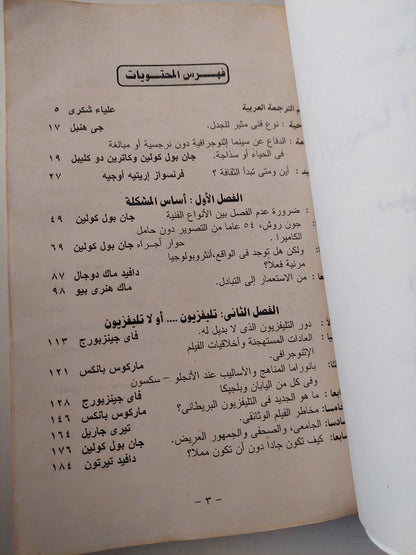 فهرس المحتويات
م الترجمة العربية علياء شكرى ٥
حية : نوع فنى مثير للجدل. جى هنبل ١٧
مة : الدفاع عن سينما إثنوجرافية دون نرجسية أو مبالغة
فى الحياء أو سذاجة. جان بول كولين وكاترين دو كلبيل ١٩
يد : أين ومتى تبدأ الثقافة ؟ فرنسواز إريتيه أوجيه ٢٧
الفصل الأول: أساس المشكلة
: ضرورة عدم الفصل بين الأنواع الفنية جان بول كولين ٤٩
: جون روش، ٥٤ عاما من التصوير دون حامل
الكاميرا . حوار أجراه جان بول كولين ٦٩
: ولكن هل توجد فى الواقع،أنثروبولوجيا
مرئية فعلاً؟ دافيد ماك دوجال ٨٧
عا: من الاستعمار إلى التبادل. ماك هنرى بيو ٩٨
الفصل الثانى: تليفزيون .... أو لا تليفزيون
: دور التليفزيون الذى لا بديل له. فاى جينزبورج ١١٣
يا: العادات المستهجنة وأخلاقيات الفيلم
الإثنوجرافى. ماركوس بانكس ١٢١
ثا: بانوراما المناهج والأساليب عند الأنجلو – سكسون
وفى كل من اليابان وبلجيكا فاى جينزبورج ١٢٨
عا: ما هو الجديد فى التليفزيون البريطانى؟ ماركوس بانكس ١٤٦
خامسا: مخاطر الفيلم الوثائقى. تيرى جاريل ١٦٤
سادسا: الجامعى، والصحفى والجمهور العريض. جان بول كولين ١٧٦
سابعا: كيف تكون جاداً دون أن تكون مملاً؟ دافيد تيرتون ١٨٤
– ٣ –